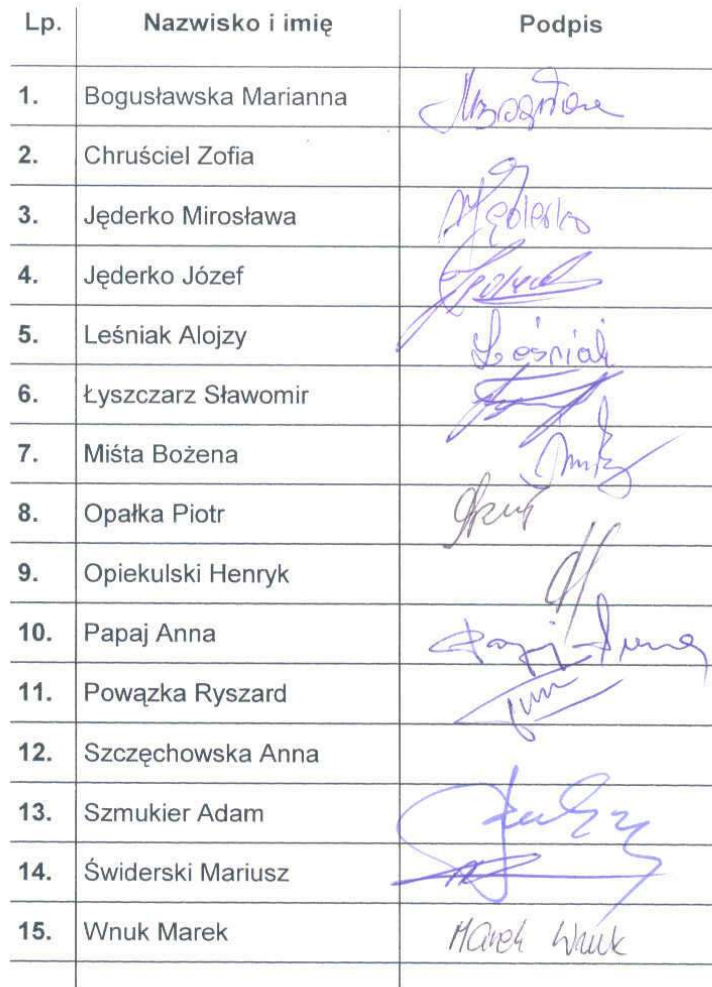 Lp. Nazwisko i imię Podpis
1. Bogusławska Marianna
2. Chruściel Zofia
3. Jęderko Mirosława Jęderko
4. Jęderko Józef
5. Leśniak Alojzy Leśniak
6. Łyszczarz Sławomir
7. Miśta Bożena
8. Opałka Piotr
9. Opiekulski Henryk
10. Papaj Anna Papaj Anna
11. Powązka Ryszard
12. Szczęchowska Anna
13. Szmukier Adam
14. Świderski Mariusz
15. Wnuk Marek Marek Wnuk